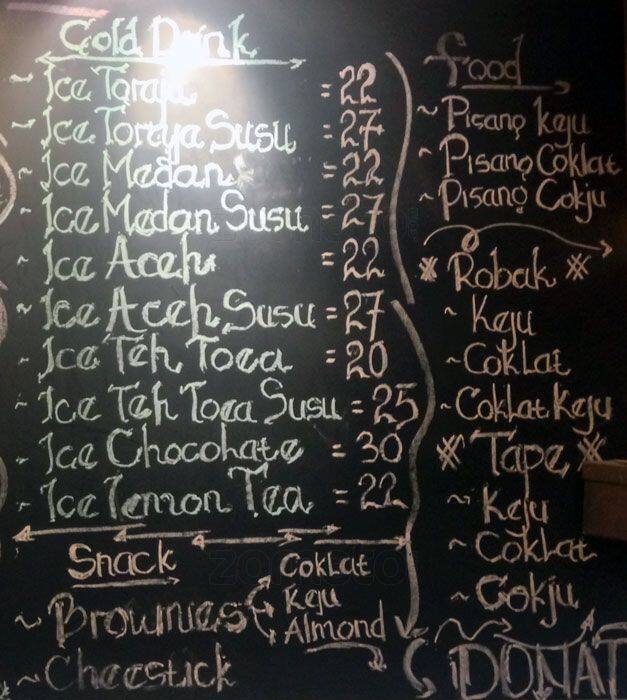 Cold Drink
~ Ice Toraja = 22
~ Ice Toraya Susu = 27
~ Ice Medan = 22
~ Ice Medan Susu = 27
~ Ice Aceh = 22
~ Ice Aceh Susu = 27
- Ice Teh Toea = 20
- Ice Teh Toea Susu = 25
- Ice Chocohate = 30
- Ice lemon Tea = 22
Snack
~ Brownies
Coklat
Keju
Almond
~ Cheestick
food
~ Pisang keju
~ Pisang Coklat
~ Pisang Cokju
* Robak *
~ Keju
~ Coklat
~ Coklat Keju
* Tape *
~ Keju
~ Coklat
~ Cokju
DONAT